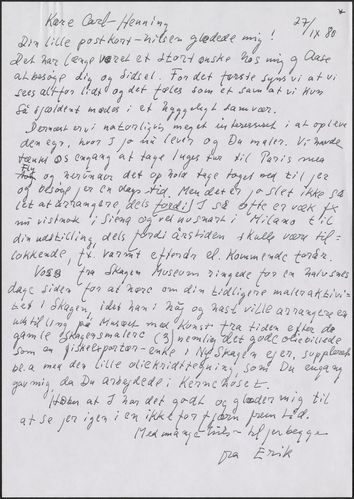 *
27/IX 80
Kære Carl-Henning
Din lille postkort-hilsen glædede mig!
Det har længe været et stort ønske hos mig og Aase
at besøge dig og Sidsel. For det første synes vi at vi
ses alt for lidt og det føles som et savn at vi kun
så sjældent mødes i et hyggeligt samvær.
Dernæst er vi naturligvis meget interesseret i at opleve
den egn, hvor I jo nu lever og Du maler. Vi havde
tænkt os engang at tage luges tur til Paris med
Fly og herunder det ophold tage toget ned til jer
og besøge jer en dags tid. Men det er jo slet ikke så
let at arrangere, dels fordi I så ofte er væk fx
nu vistnok i Siena og ved nusnart i Milano til
din udstilling, dels fordi årstiden skulle være til-
lokkende, fx. varmt efterår el. kommende forår.
Vos fra Skagen Museum ringede for en halv snes
dage siden for at høre om din tidligere maleraktivi-
tet i Skagen, idet han i maj og næst ville arrangere en
udstilling på Museet med kunst fra tiden efter de
gamle Skagensmalere (3) nemlig det gode oliebillede
som en fiskeksportør-enke i Ny Skagen ejer, suppleret
bl.a med den lille oliekridttegning, som Du engang
gav mig da Du arbejdede i Kernehuset.
Håber at I har det godt og glæder mig til
at se jer igen i en ikke for fjern fremtid.
Med mange hils- til jer begge
fra Erik